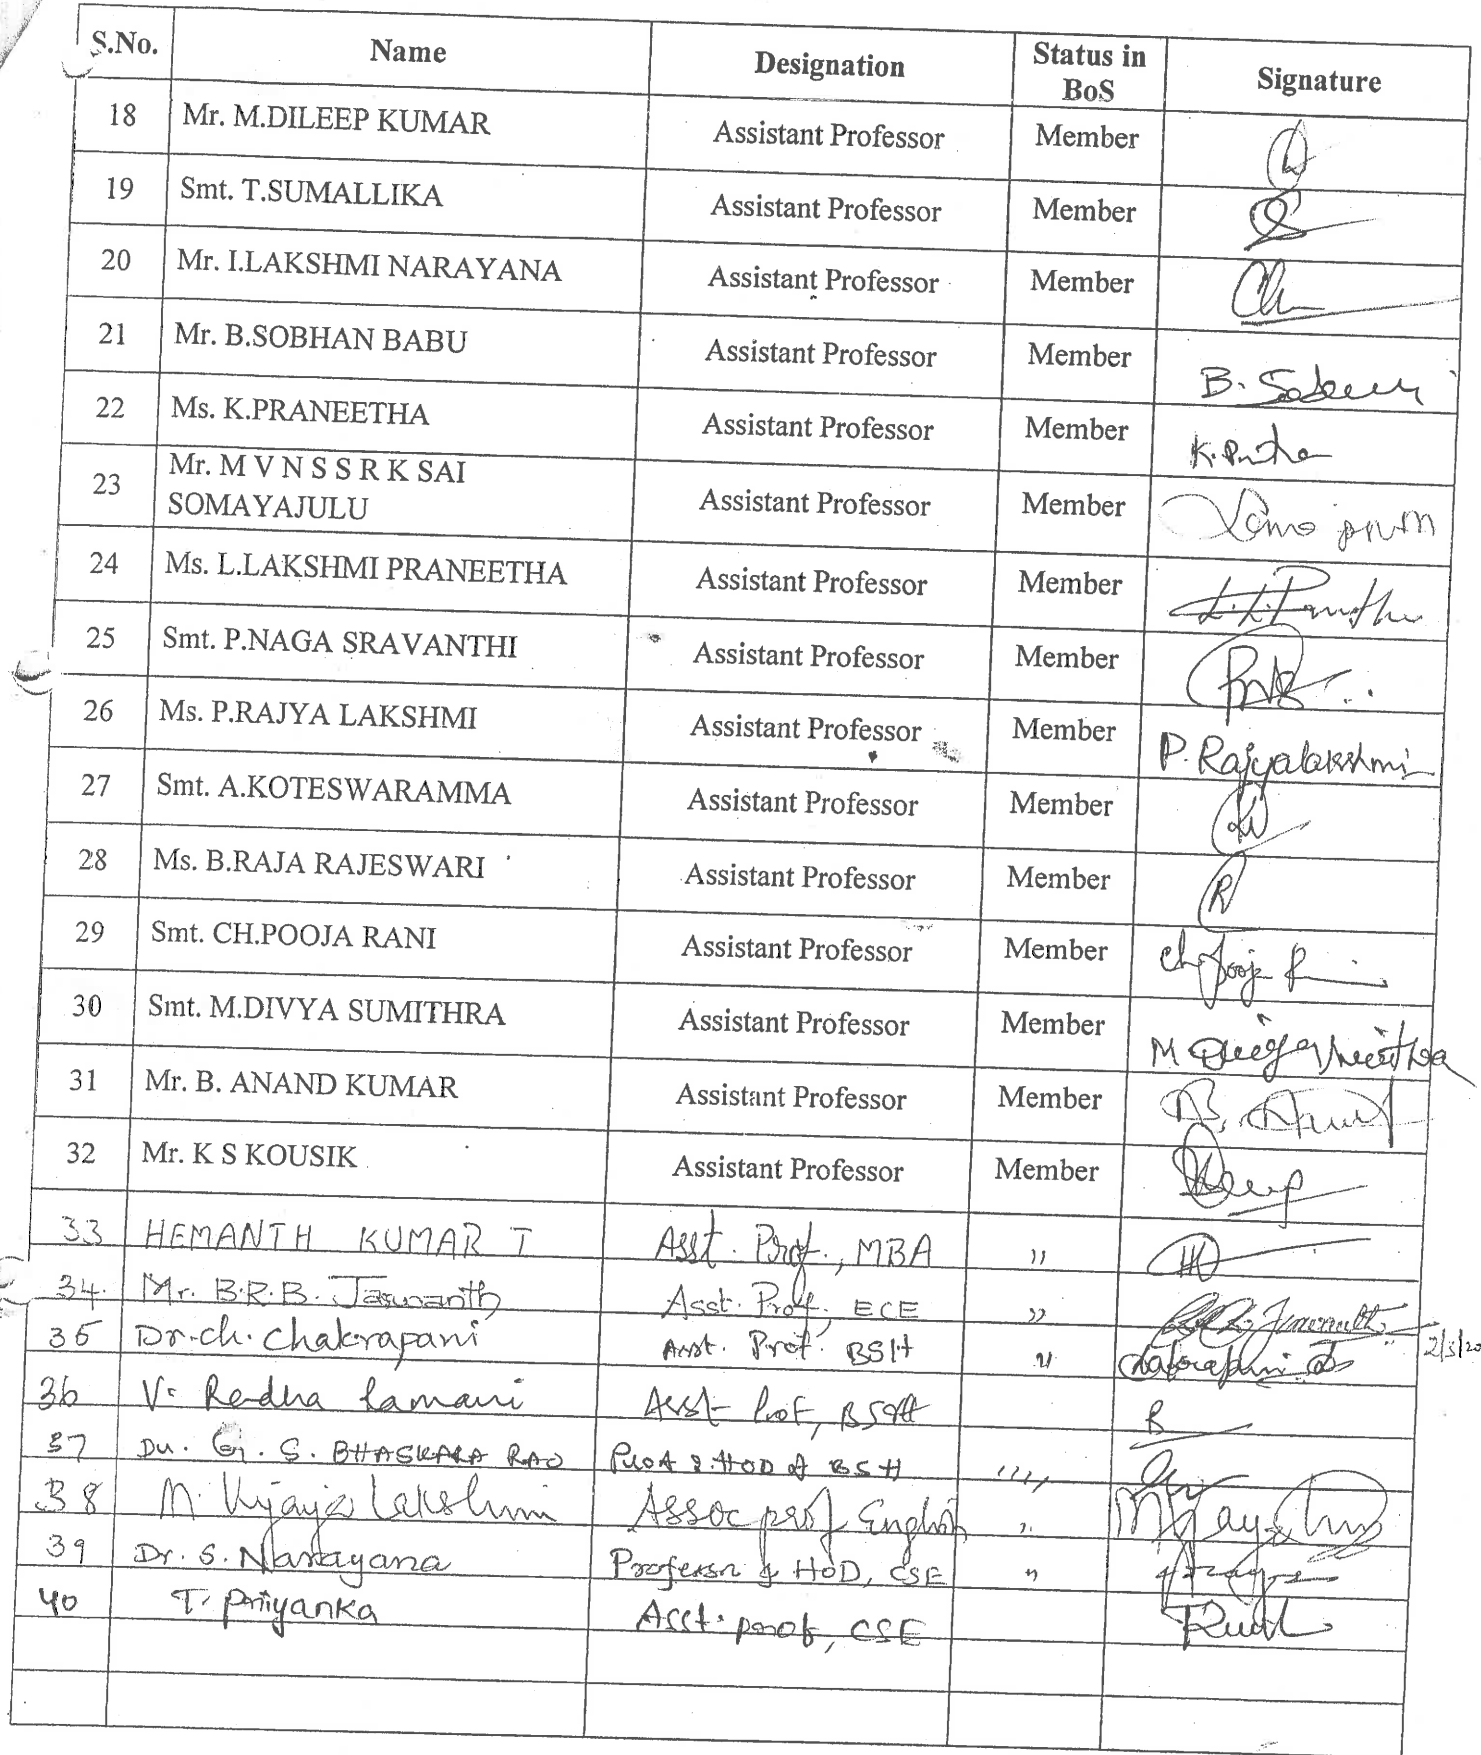 S.No. Name Designation Status in BoS Signature
18 Mr. M.DILEEP KUMAR Assistant Professor Member
19 Smt. T.SUMALLIKA Assistant Professor Member
20 Mr. I.LAKSHMI NARAYANA Assistant Professor Member
21 Mr. B.SOBHAN BABU Assistant Professor Member B.
22 Ms. K.PRANEETHA Assistant Professor Member
23 Mr. M V N S S R K SAI SOMAYAJULU Assistant Professor Member
24 Ms. L.LAKSHMI PRANEETHA Assistant Professor Member
25 Smt. P.NAGA SRAVANTHI Assistant Professor Member
26 Ms. P.RAJYA LAKSHMI Assistant Professor Member P. Rajyalakshmi
27 Smt. A.KOTESWARAMMA Assistant Professor Member
28 Ms. B.RAJA RAJESWARI Assistant Professor Member R
29 Smt. CH.POOJA RANI Assistant Professor Member
30 Smt. M.DIVYA SUMITHRA Assistant Professor Member
31 Mr. B. ANAND KUMAR Assistant Professor Member
32 Mr. K S KOUSIK Assistant Professor Member
33 HEMANTH KUMAR T Asst. Prof., MBA "
34. Mr. B.R.B. Jaswanth Asst. Prof, ECE "
35 Dr.ch. Chakrapani Asst. Prof. BSH "
36 V. Radha Ramani Asst Prof, BS&H
37 Dr. G. S. BHASKARA RAO Prof & HOD of BSH "
38 M. Vijaya Lakshmi Assoc prof English "
39 Dr. S. Narayana Professor & HOD, CSE "
40 T. Priyanka Asst. prof, CSE